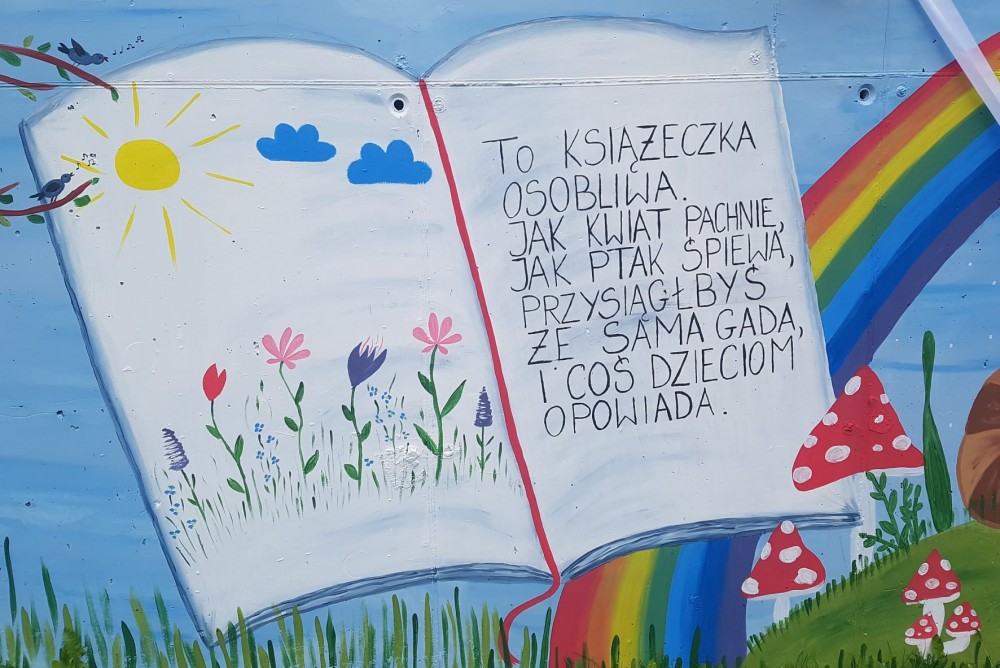 TO KSIĄŻECZKA
OSOBLIWA.
JAK KWIAT PACHNIE,
JAK PTAK ŚPIEWA,
PRZYSIĄGŁBYŚ
ŻE SAMA GADA,
I COŚ DZIECIOM
OPOWIADA.